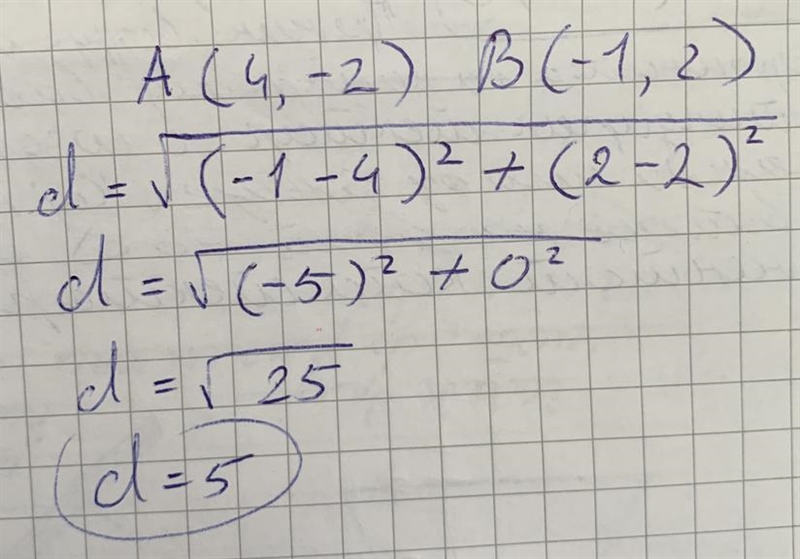 A (4, -2) B (-1, 2)
d = √(-1 - 4)² + (2 - 2)²
d = √(-5)² + 0²
d = √25
d = 5